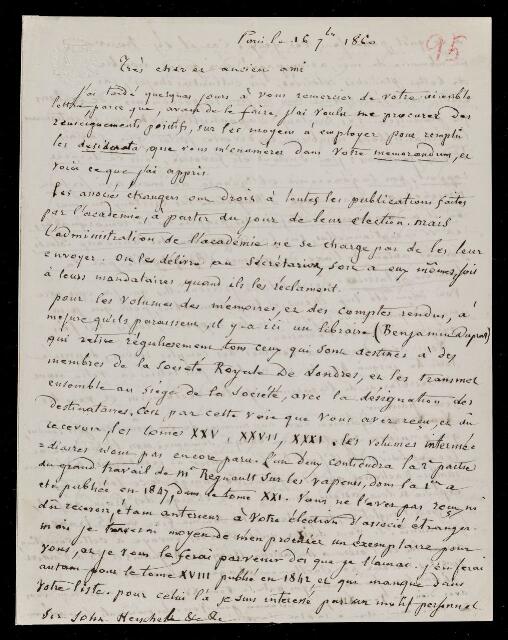 Paris le 16 7bre 1860
95
Très cher et ancien ami
J'ai tardé quelques jours à vous remercier de votre aimable
lettre parce que, avant de le faire, j'ai voulu me procurer des
renseignements positifs, sur les moyens à employer pour remplir
les desiderata, que vous m'énumérez dans votre memorandum, et
voici ce que j'ai appris.
Les associés étrangers ont droit à toutes les publications faites
par l'académie, à partir du jour de leur élection. mais
l'administration de l'académie ne se charge pas de les leur
envoyer. on les délivre au Secrétariat, soit à eux mêmes, soit
à leurs mandataires quand ils les réclament.
pour les volumes des mémoires, et des comptes rendus, à
mesure qu'ils paraissent, il y-a ici un libraire (Benjamin Duprat)
qui retire régulièrement tous ceux qui sont destinés à des
membres de la Société Royale De Londres, et les transmet
ensemble au siège de la Société, avec la désignation des
destinataires. C'est par cette voie que vous avez reçu, et dû
recevoir, les tomes XXV, XXVII, XXXI. les volumes intermé-
=diaires n'ont pas encore paru. L'un d'eux contiendra la 2e partie
du grand travail de Mr Regnault sur les vapeurs, dont la 1ere a
été publiée en 1847, dans le tome XXI. Vous ne l'avez pas reçu, ni
dû recevoir, étant antérieur à votre élection d'associé étranger.
mais je trouverai moyen de m'en procurer un exemplaire pour
vous, et je vous le ferai parvenir dès que je l'aurai. j'en ferai
autant pour le tome XVIII publié en 1842 et qui manque dans
votre liste. pour celui là je suis intéressé par un motif personnel
Sir John Herschel &c &c